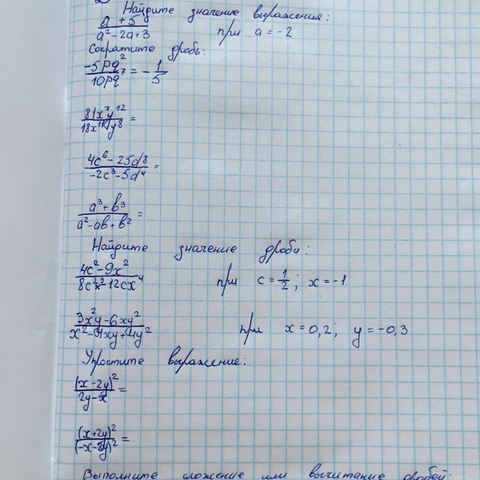 Найдите значение выражения:
a + 5 / a² - 2a + 3 при a = -2
Сократите дробь:
-5pq² / 10pq⁷ = - 1/5
81x⁷y¹² / y⁸ =
4c⁶ - 25d⁸ / -2c³ - 5d⁴ =
a³ + b³ / a² - ab + b² =
Найдите значение дробь:
4c² - 9x² / 8c²x² - 12cx⁴ при c = 1/2; x = -1
3x²y - 6xy² / x² - 4xy + 4y² при x = 0,2; y = -0,3
Упростите выражение:
(x - 2y)² / 2y - x =
(x + 2y)² / (-x - 2y)² =
Выполните сложение или вычитание дробей: